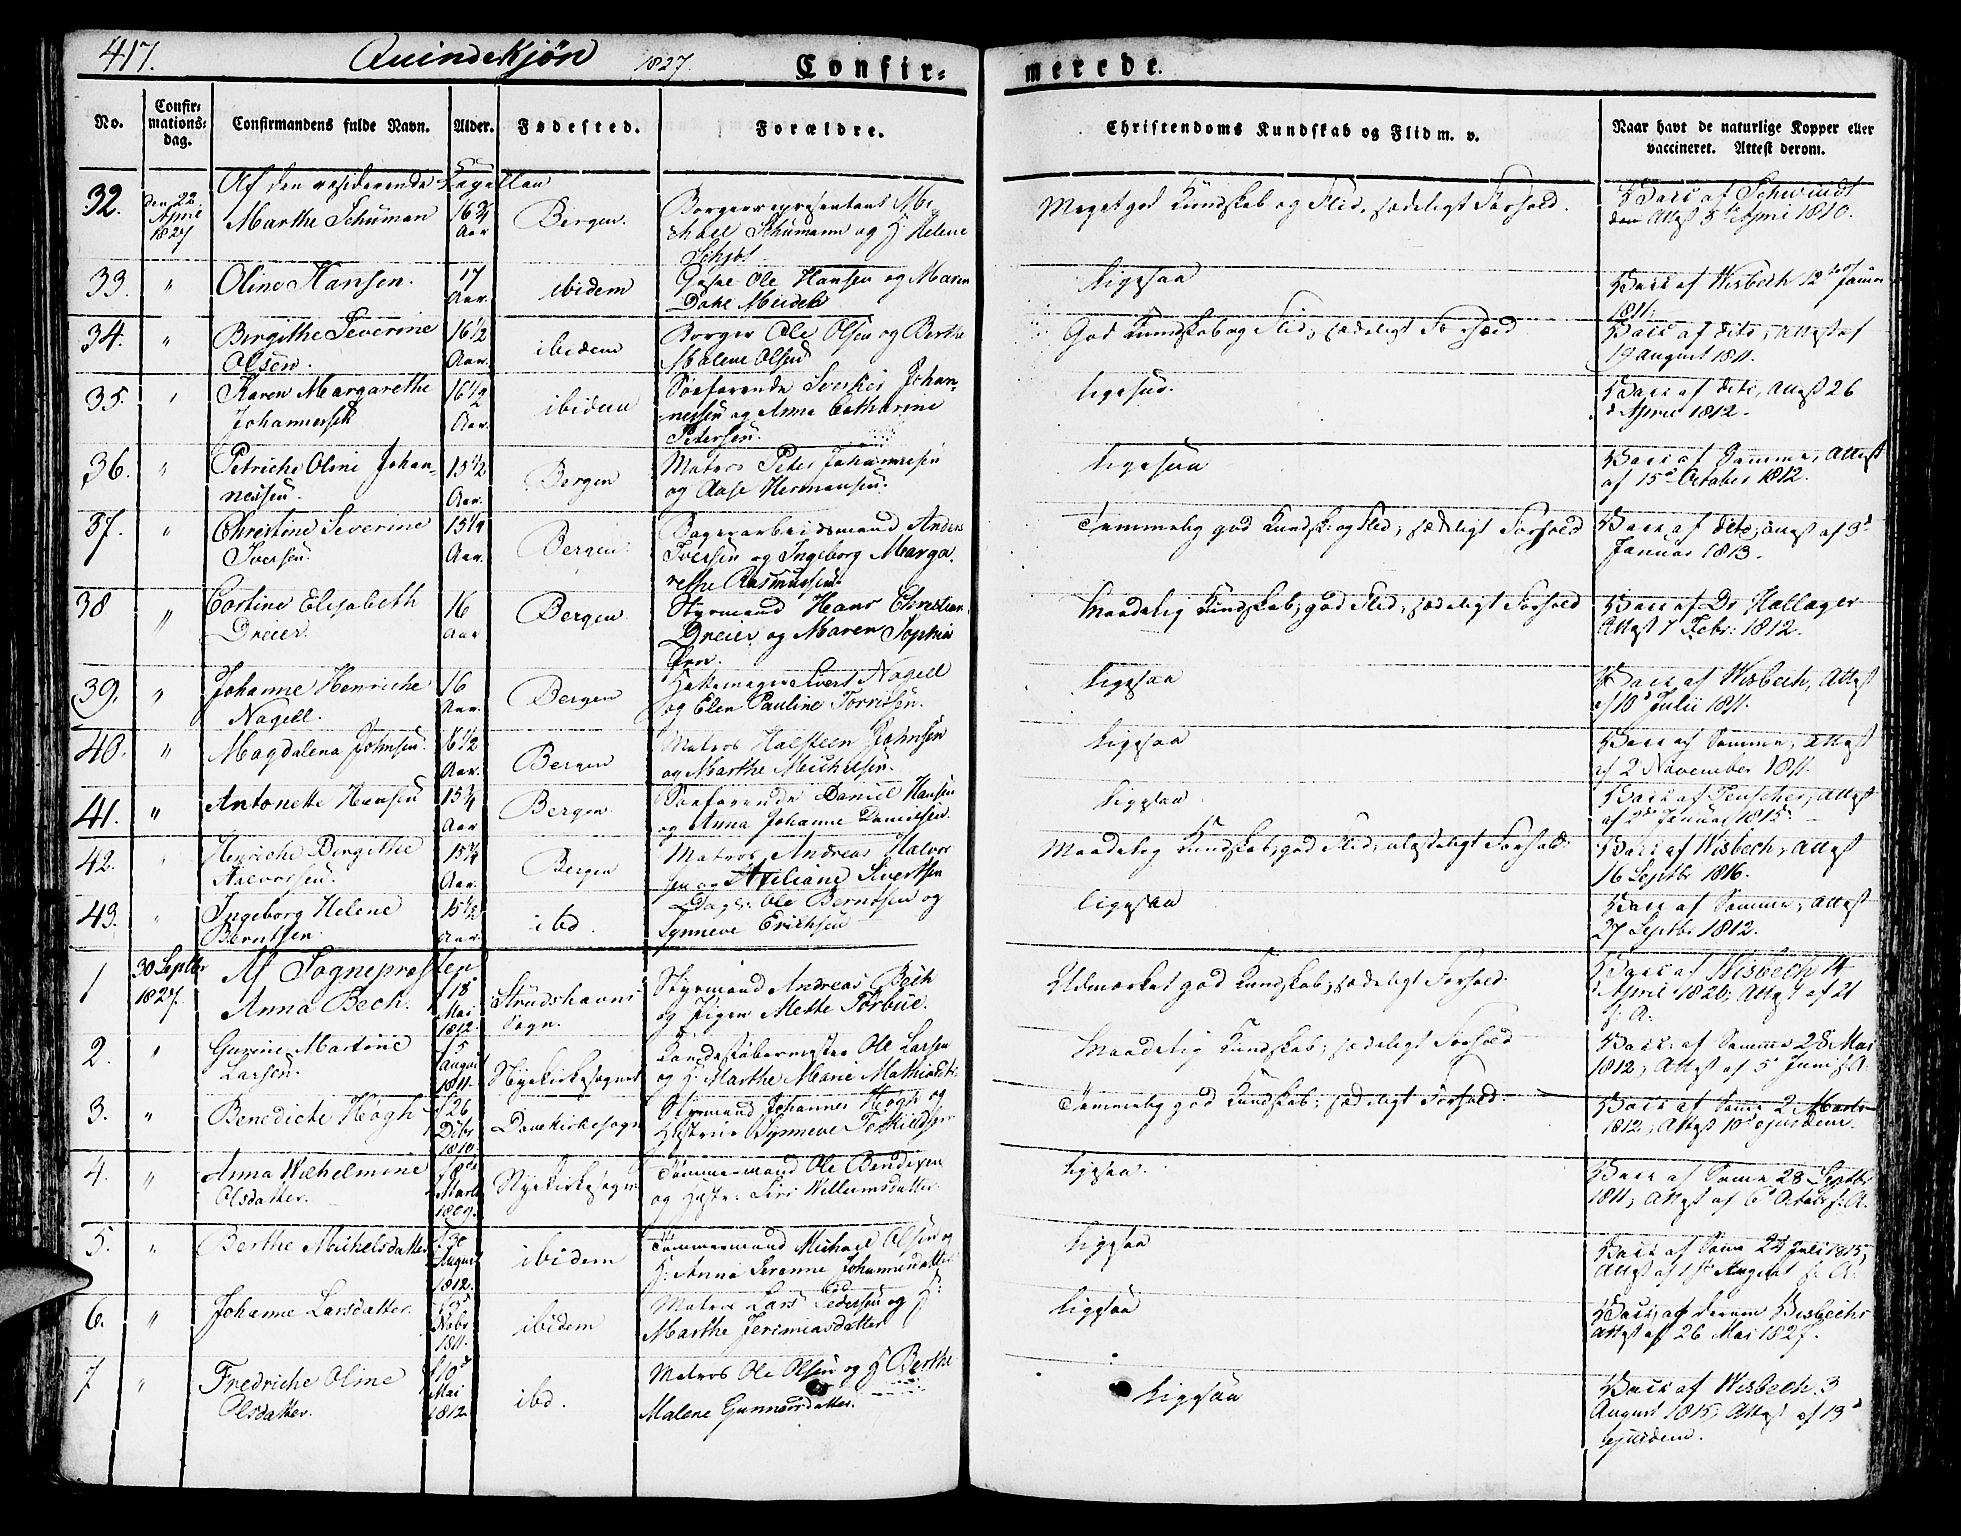 417. Quindekjøn 1827. Confir= merede.
No. Confir= mations= dag. Confirmandens fulde Navn. Alder. Fødested. Forældre. Christendoms Kundskab og Flid m. v. Naar havt de naturlige Kopper eller vaccineret. Attest derom.
Af den residerende Capellan
32. den 22 April 1827 Marthe Schuman 16 3/4 Aar Bergen. Borgerrepresentant Mi
chael Schumann og H: Helene Meget god Kundskab og Flid, sædeligt Forhold. Vacc af Schwindt
Attest 5 April 1810.
33. " Oline Hansen. 17 Aar. ibidem Ole Hansen og Maren ligesaa Vacc af Wisbech 12 Januar
1811.
34. " Birgithe Severine
Olsen. 16 1/2 Aar. ibidem Borger Ole Olsen og Berthe
Malene Olsen God Kundskab og Flid, sædeligt Forhold Vacc af dito, Attest af
19 august 1811.
35. " Karen Margarethe
Johannessen 16 1/2 Aar. ibidem Søefarende Johan=
nessen og Anna Cathrine
Petersen. ligesaa. Vacc af dito, Attest 26
April 1812.
36. " Petriche Oline Johan=
nessen. 15 1/2 Aar. Bergen Matros Peter Johannesen
og Aase Hermansen. ligesaa Vacc af Samme, Attest
af 15 October 1812.
37. " Christine Severine
Iversen. 15 1/4 Aar. Bergen. Anders
Iversen og Ingeborg Marga
rethe Rasmussen. Temmelig god Kundsk: og Flid, sædeligt Forhold Vacc af dito, Attest af 3
Januar 1813.
38 " Cortine Elisabeth
Dreier. 16 Aar Bergen Styrmand Hans Christian
Dreier og Maren Sophia Maadelig Kundskab, god Flid, sædeligt Forhold Vacc af Dr Hallager
Attest 7 Febr: 1812.
39. " Johanne Henriche
Nagell. 16 Aar. Bergen Nagell
og Elen Pauline Torrisen. Ligesaa Vacc af Wisbech, Attest
10 Julii 1811.
40. " Magdalena Johnsen. 16 1/2 Aar. Bergen Matros Halsteen Johnsen
og Marthe Michelsen. ligesaa Vacc af Samme, Attest
af 2 November 1811.
41. " Antonette Hansen 15 3/4 Aar Bergen. Søefarende Daniel Hansen
og Anna Johanne Danielsen. ligesaa Vacc af Attest
af 2 Januar 1815.
42. " Henriche Birgithe
Halvorsen. 15 3/4 Aar. Bergen Matros Andreas Halvor
sen og Sivertsen Maadelig Kundskab, god Flid, sædeligt Forhold. Vacc af Wisbech, Attest
16 Septbr 1816.
43. " Ingeborg Helene
Berntsen. 15 1/2 Aar. ibd. Ole Berntsen og
Synneve Erichsen ligesaa Vacc af Samme, Attest
27 Septbr 1812.
Af Sogneprosten
1 30 Septbr 1827. Anna Bech. 18 Mai 1812. Strudshavns
Sogn. Styrmand Andreas Bech
og Pigen Mette Udmærket god Kundskab, sædeligt Forhold. Vacc af Wisbech 14
April 1820, Attest af 21
s: A:
2. " Gurine Martine
Larsen. 5 august 1811. Nyekirkesognet Ole Larsen
og H: Marthe Marie Maadelig Kundskab, sædeligt Forhold Vacc: af Samme 28 Mai
1812, Attest af 5 Juni s: A:
3. " Benedicte Høgh f 26 Dcbr 1810 Domkirkesogn Styrmand Johannes Høgh og
Hustrue Synneve Temmelig god Kundskab, sædeligt Forhold. Vacc af Same 2 Marts
1812, Attest 10 ejusdem.
4. " Anna Wilhelmine
Olsdatter. Marts 1809. Nyekirkesogn Tømmermand Ole Bendixen
og Hustr: Siri Willumsdatter. ligesaa Vacc af Samme 28 Septbr
1811, Attest af 6 October s: A.
5. " Berthe Michelsdatter August 1812. ibidem Tømmermand Michael Olsen og
H: Anna Serenne Johannesdatter ligesaa Vacc af Same 24 Juli 1815,
Attest af 1 August s: A:
6. " Johanne Larsdatter. Nobr 1811. ibidem Matros Lars Pedersen og H:
Marthe Jerimiasdatter ligesaa Vacc; af derom Wisbechs
Attest af 26 Mai 1827.
7 " Fredriche Oline
Olsdatter. f 10 Mai 1812. ibd. Matros Ole Olsen og H Berthe
Malene Gunnersdatter. Ligesaa Vacc af Wisbech 3
August 1815, Attest af 13
ejusdem.